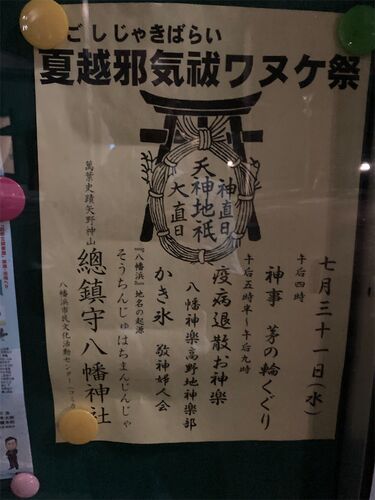 ごしじゃきばらい
夏越邪気祓ワヌケ祭
神直日
天神地祇
大直日
七月三十一日(水)
午后四時
神事 茅の輪くぐり
午后五時半〜午后九時
疫病退散お神楽
八幡神楽高野地神楽部
かき氷 敬神婦人会
『八幡浜』地名の起源
そうちんじゅはちまんじんじゃ
總鎮守八幡神社
萬葉史蹟矢野神山
八幡浜市民文化活動センター